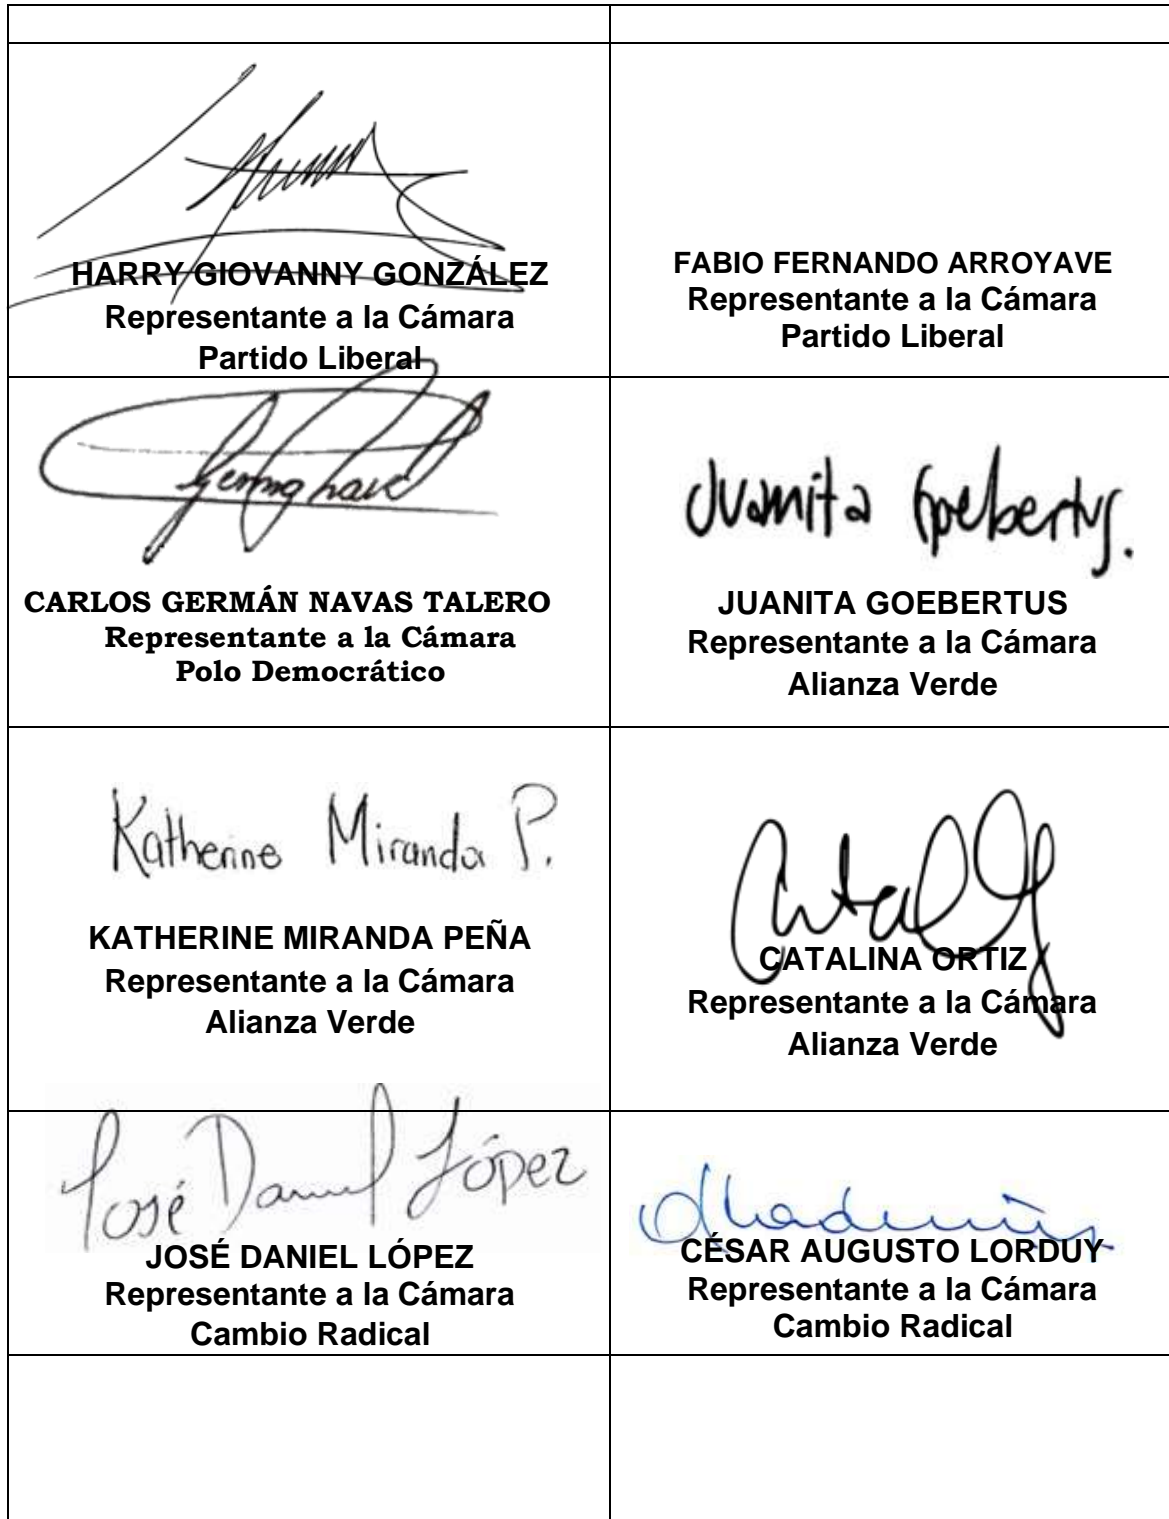 HARRY GIOVANNY GONZÁLEZ
Representante a la Cámara
Partido Liberal
FABIO FERNANDO ARROYAVE
Representante a la Cámara
Partido Liberal
CARLOS GERMÁN NAVAS TALERO
Representante a la Cámara
Polo Democrático
Juanita Goebertus.
JUANITA GOEBERTUS
Representante a la Cámara
Alianza Verde
Katherine Miranda P.
KATHERINE MIRANDA PEÑA
Representante a la Cámara
Alianza Verde
CATALINA ORTIZ
Representante a la Cámara
Alianza Verde
José Daniel López
JOSÉ DANIEL LÓPEZ
Representante a la Cámara
Cambio Radical
CÉSAR AUGUSTO LORDUY
Representante a la Cámara
Cambio Radical